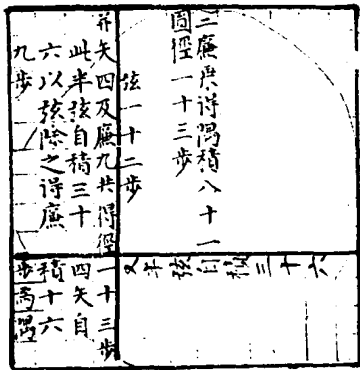 二廉乘得隅積八十一
圓徑一十三步
弦一十二步
并矢四及廉九共得徑一十三步
此半弦自積三十
六以弦除之得廉
九步
又半弦自積三十六
四矢自
積十六
步為隅